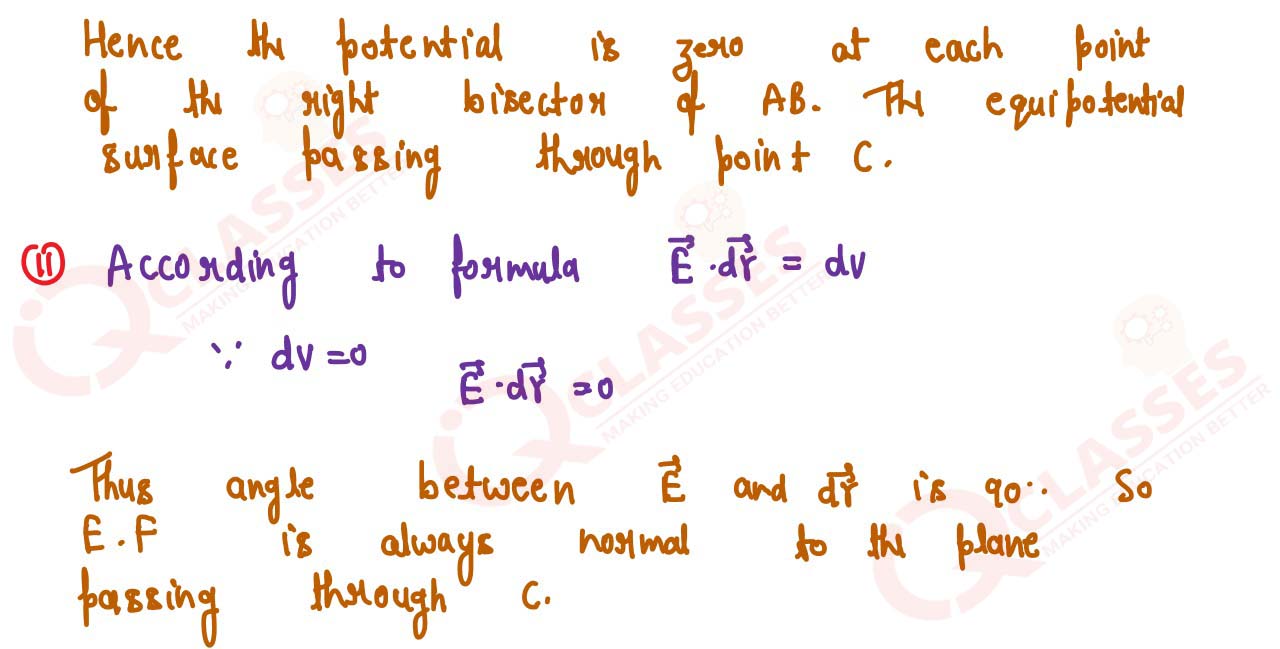 Hence the potential is zero at each point
of the right bisector of AB. The equipotential
surface passing through point C.
(ii) According to formula E⃗ · dr⃗ = dv
∵ dv = 0
E⃗ · dr⃗ = 0
Thus angle between E⃗ and dr⃗ is 90°. So
E.F is always normal to the plane
passing through C.
CLASSES
MAKING EDUCATION BETTER
CLASSES
MAKING EDUCATION BETTER
CLASSES
MAKING EDUCATION BETTER